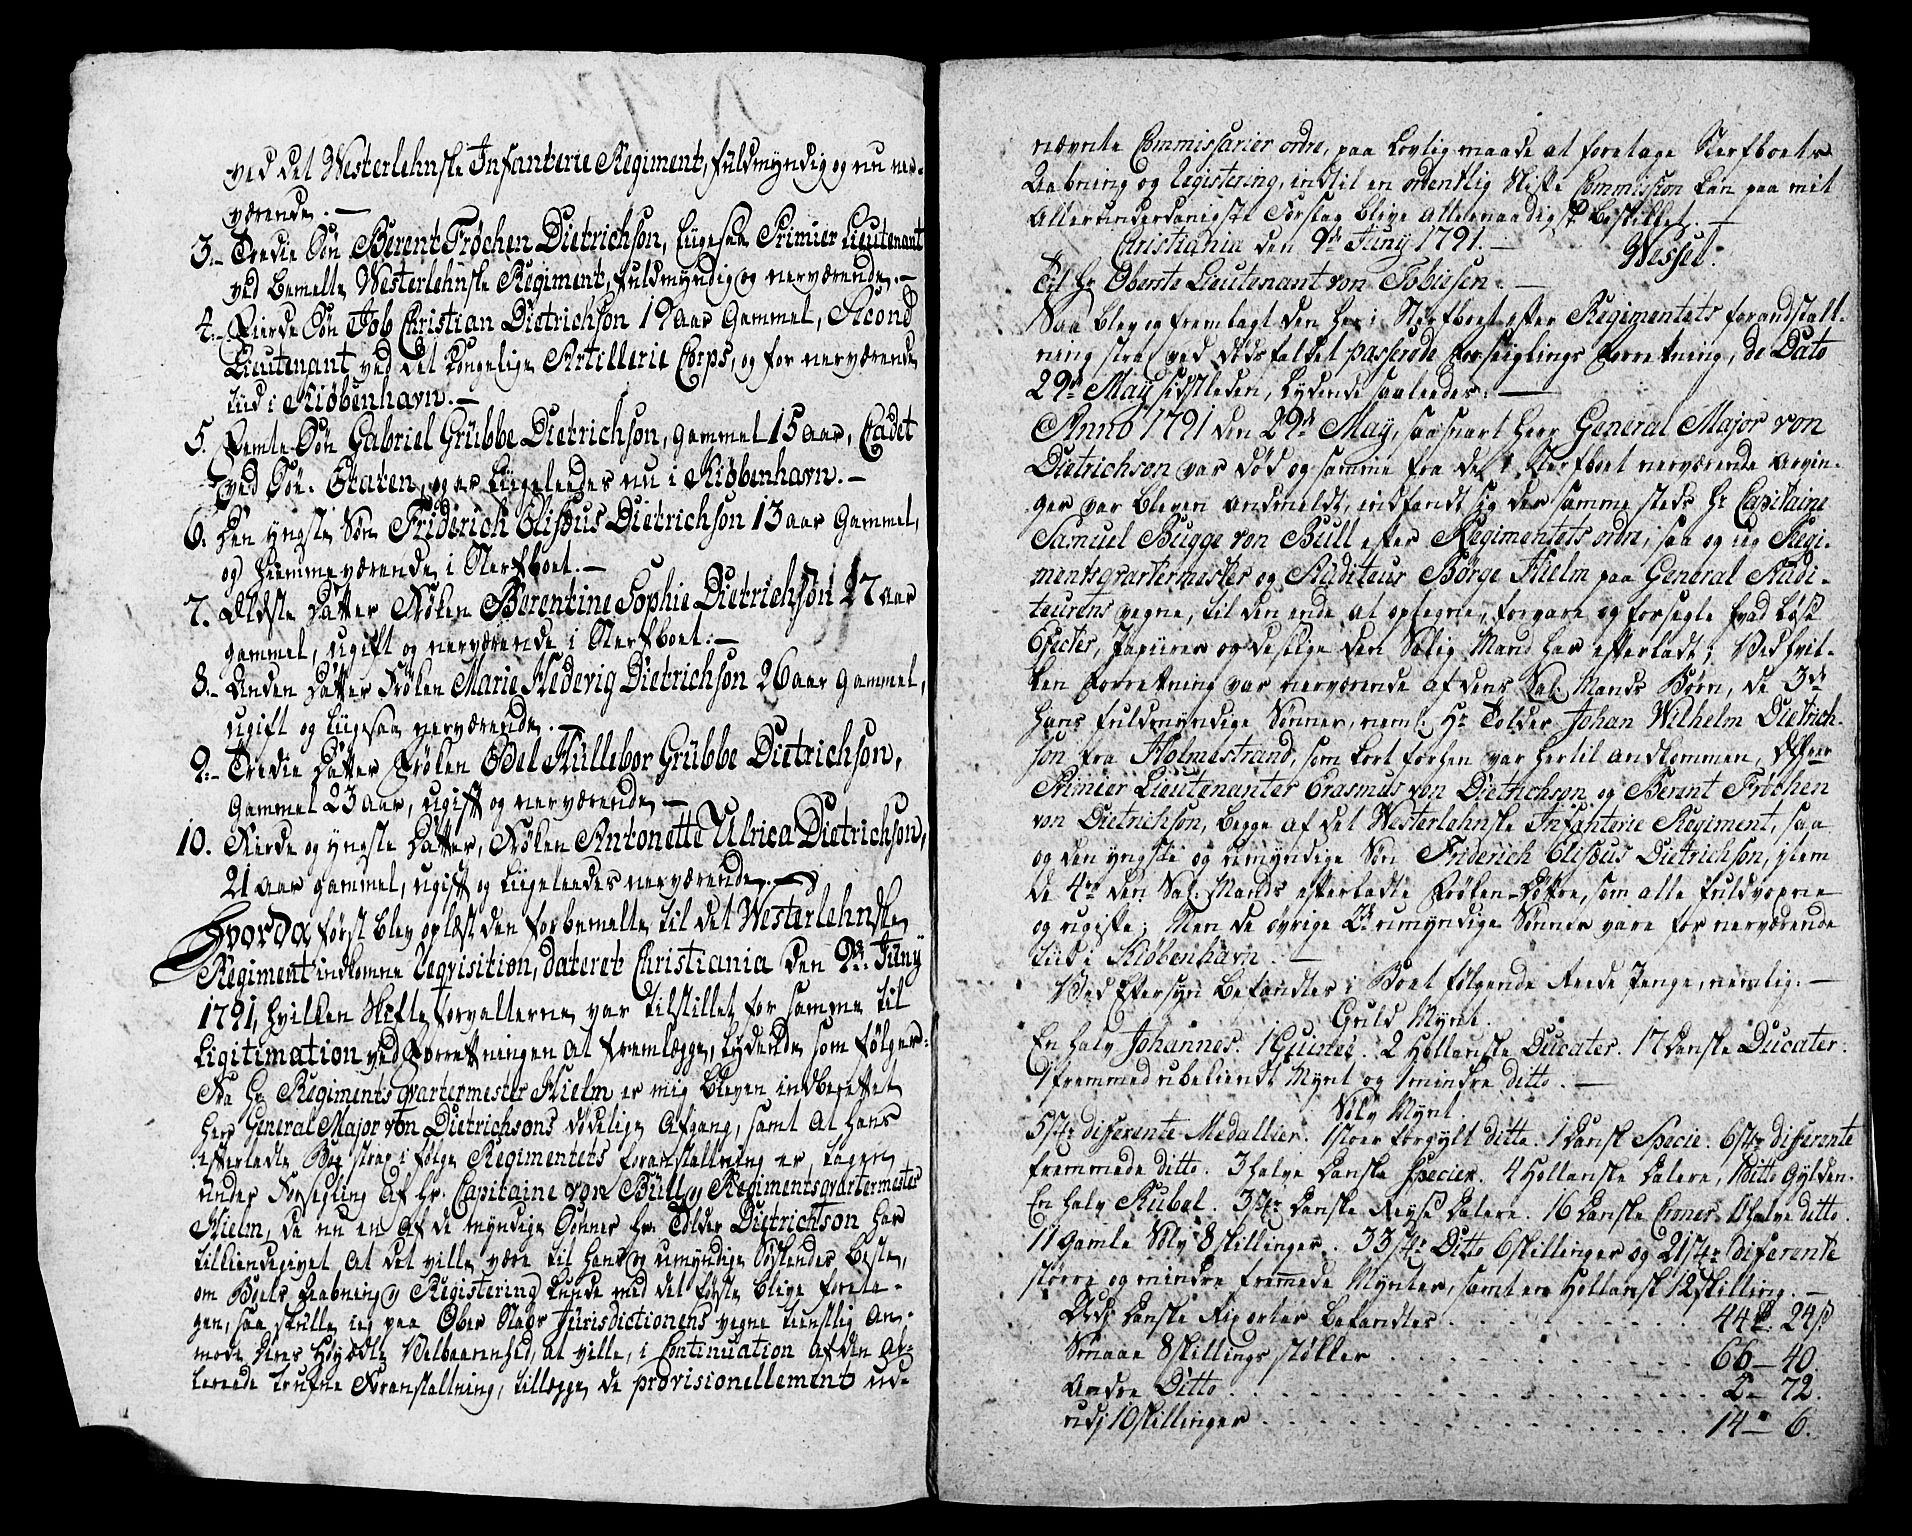 ved det Westerlehnske Infanterie Regiment, fuldmyndig og nu ner-
værende. —
3. Tredie Søn Berent Frøchen Dietrichson, ligesaa Primier Lieutenant
ved bemelte Westerlehnske Regiment, fuldmyndig og nerværende. —
4. Fierde Søn Job Christian Dietrichson 19 aar gammel, Second
Lieutenant ved det Kongelige Artillerie Corps, og for nerværende
tiid i Kiøbenhavn. —
5. Femte Søn Gabriel Grübbe Dietrichson, gammel 15 aar, Cadet
ved Søe-Etaten, og er ligeleedes nu i Kiøbenhavn. —
6. Den yngste Søn Friderich Elisæus Dietrichson 13 aar gammel,
og hiemmeværende i Sterfboet. —
7. Ældste Datter Frøken Berentine Sophie Dietrichson 27 aar
gammel, ugift og nerværende i Sterfboet. —
8. Anden Datter Frøken Marie Hedevig Dietrichson 26 aar gammel,
ugift og ligesaa nerværende. —
9. Tredie Datter Frøken Edel Hüllebor Grübbe Dietrichson,
gammel 23 aar, ugift og nerværende —
10. Fierde og yngste Datter, Frøken Antonette Ulrica Dietrichson,
21 aar gammel, ugift og ligeleedes nerværende. —
Hvorda først blev oplæst den forbemelte til det Westerlehnske
Regiment indkomne Reqvisition, dateret Christiania den 9de Juny
1791, hvilken Skifteforvalterne var tilstillet for samme til
Legitimation ved Forretningen at fremlægge, lydende som følger:
Fra Hr. Regimentsqvartermester Hielm er mig bleven indberettet
Herr General Major von Dietrichsons dødelige Afgang, samt at hans
efterladte Boe strax i følge Regimentets foranstaltning er tagen
under Forsegling af Hr. Capitaine von Büll og Regimentsqvartermester
Hielm, da nu en af de myndige Sønner Hr. Tolder Dietrichson har
tilkiendegivet at det ville være til hans og umyndige Søskendes beste,
om Boets Aabning og Registering kunde med det første blive foreta-
gen, saa skulle ieg paa Ober Krigs Jurisdictionens vegne tienstlig an-
mode Deres Høyædle Velbaarenhed, at ville, i Continuation af den al-
lereede trufne Foranstaltning, tillægge de provisionellement ud-
nævnte Commissarier ordre, paa lovlig maade at foretage Sterfboets
Aabning og Registering, indtil en ordentlig Skifte Commission kan paa mit
allerunderdanigste Forslag blive allernaadigst beskikket. —
Christiania den 9de Juny 1791. —
Wessel.
Til Hr. Oberste Lieutenant von Tobiesen. —
Saa blev og fremlagt den her i Sterfboet efter Regimentets foranstalt-
ning strax ved dødsfaldet passerede Forseiglings Forretning, de Dato
29de May sidstleden, lydende saaledes: —
Anno 1791 den 29de May, saasnart Herr General Major von
Dietrichson var død og samme fra de i Sterfboet nerværende Arvin-
ger var bleven anmeldt, indfandt sig der samme steds Hr. Capitaine
Samuel Bugge von Bull efter Regimentets ordre, saa og ieg Regi-
mentsqvartermester og Auditeur Børge Hielm paa General Audi-
teurens vegne, til den ende at optegne, forvare og forsegle hvad løse
Efecter, Papiirer og deslige den Salig Mand har efterladt; Ved hvil-
ken Forretning var nerværende af dens Sal. Mands Børn, de 3de
hans fuldmyndige Sønner, neml: Hr. Tolder Johan Wilhelm Dietrich-
son fra Holmestrand, som kort forhen var hertil andkommen,
Primier Lieutenanter Erasmus von Dietrichson og Berent Frøchen
von Dietrichson, begge af det Westerlehnske Infanterie Regiment, saa
og den yngste og umyndige Søn Friderich Elisæus Dietrichson, item
de 4re den Sal. Mands efterladte Frøken-Døttre, som alle fuldvoxne
og ugifte; Men de øvrige 2de umyndige Sønner vare for nerværende
tiid i Kiøbenhavn. —
Ved Eftersyn befandtes i Boet følgende Reede Penge, nemlig: —
Guld Mynt.
En halv Johannes. 1 Guinee. 2 Hollandske Ducater. 17 Danske Ducater.
1 fremmed ubekiendt Mynt og 1 mindre ditto. —
Sølv Mynt.
5 St. diferente Medallier. 1 stoer forgylt ditto. 1 Dansk Specie. 6 St. diferente
fremmede ditto. 3 halve Danske Specier. 4 Hollanske Dalere, 1 ditto Gylden.
En halv Rubel. 3 St. Danske Reyse Dalere. 16 Danske Croner. 1 halve ditto.
11 gamle Sølv 8 skillinger. 33 St. Ditto 6 skillinger og 21 St. diferente
større og mindre fremmede Mynter, samt en Hollansk 12 skilling. —
Udj Danske Rixorter befandtes . . . . . . . . . . 44 Rd. 24 ß
Smaae 8 skillings støkker . . . . . . . . . . 66 — 40.
Andre Ditto . . . . . . . . . . 2 — 72.
udj 10 skillinger . . . . . . . . . . 14 — 6.